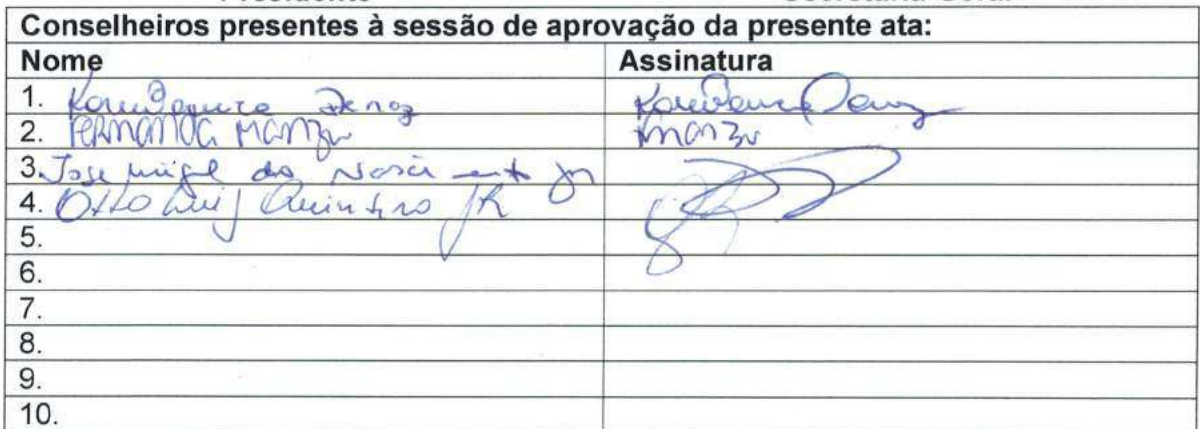 Conselheiros presentes à sessão de aprovação da presente ata:
Nome Assinatura
1. Karen
2. Fernanda Manzu Manzu
3. Jose Miguel do Nascimento Jr
4. Otto Luiz Quintino JR
5.
6.
7.
8.
9.
10.